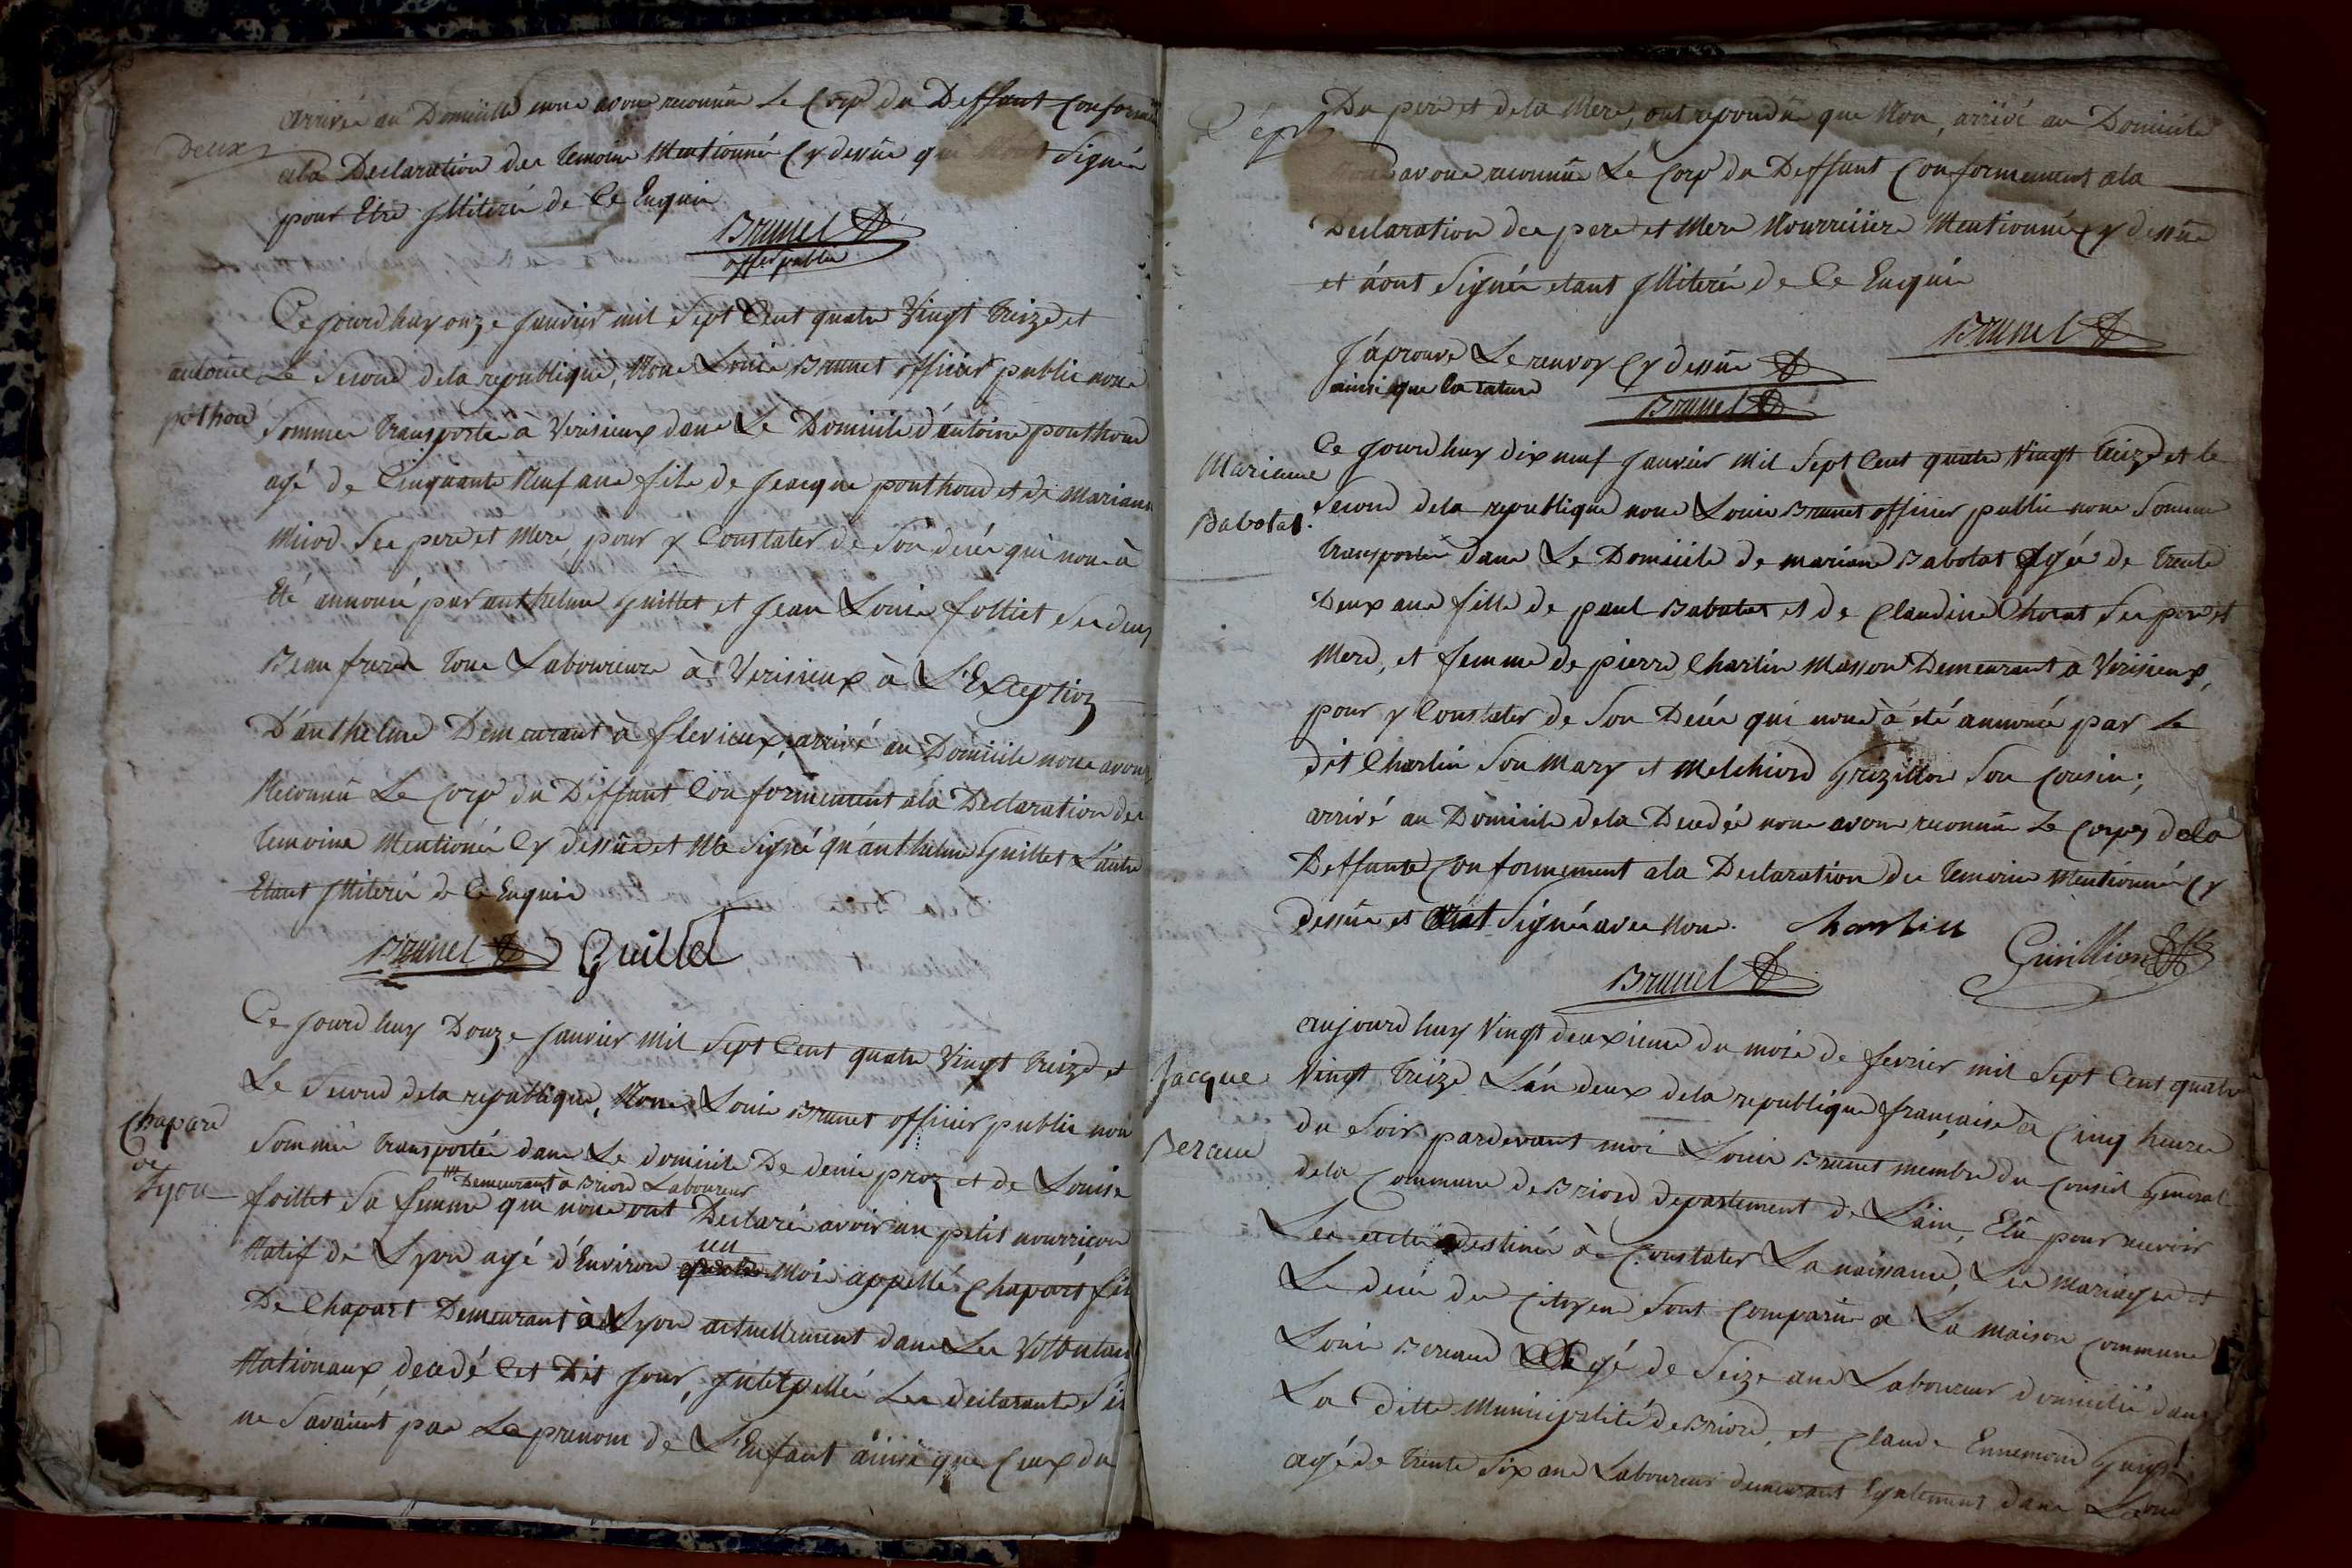 Deux
arrivés au Domicille nous avons reconnûs Le Corp du Deffunt Conformé
ala Declaration des temoins Mentionnés Cy dessûs qui Signés
pour Etre jlliterés de Ce Enquis
Brunet
offer public
Ce jourdhuy onze janvier mil Sept Cent quatre Vingt treize et
antoine Le Second dela republique, Nous Louis Brunet officier public nous
pothon Sommes transportes à Verisieux dans Le Domicile d'antoine ponthond
agé de Cinquante Neuf ans fils de jeacque ponthond et de Mariane
Miiod Ses pere et Mere pour y Constater de Son decès qui nous à
Eté annoncé par anthelme Guillet et jean Louis folliet Ses deux
Beau freres tous Laboureurs à Verisieux à L'Exception
D'anthelme Demeurant à flevieux, arrivé au Domicile nous avons
Reconnû Le Corp du Deffunt Conformement ala Declaration des
temoins Mentionés Cy dessûs et Na Signé qu'anthelme Guillet L'autre
Etant jlliteré de Ce Enquis
Brunet Guillet
Ce jourdhuy Douze janvier Mil Sept Cent quatre Vingt treize et
Le Second dela republique, Nous Louis Brunet officier public nous
Chapard
de
Lyon
Sommes transportés dans Le domicile De denis proz et de Louise
Demeurant à Briord Laboureur
foillet Sa femme qui nous ont Declarés avoir un petit nourriçon
un
Natif de Lyon agé d'Environ quatre Mois appellé Chapart fils
De Chapart Demeurant à Lyon actuellement dans Les Vollontaires
Nationaux decedé Cet Dit jour, jntérpellés Les declarants S'il
ne Savaient pas Le prenom de L'Enfant ainsi que Ceux du
Du pere et dela Mere, ont repondûs que Non, arrivé au Domicile
Nous avons reconnûs Le Corp du Deffunt Conformement ala
Declaration des pere et Mere Nourrissiers Mentionnés Cy dessûs
et n'ont Signés etant jlliterés de Ce Enquis
Brunet
J'aprouve Le renvoy Cy dessûs
ainsi que la rature
Brunet
Mariane
Babolat
Ce jourdhuy dix neuf janvier Mil Sept Cent quatre Vingt treize et le
Second dela republique nous Louis Brunet officier public nous Sommes
transportés dans Le Domicile de mariane Babolat agée de trente
Deux ans fille de paul Babolat et de Claudine Chorat Ses pere et
Mere, et femme de pierre Charlin Masson Demeurant à Verisieux,
pour y Constater de Son Decès qui nous à été annoncé par Le
dit Charlin Son Mary et Melchiord Grezillon Son Cousin;
arrivé au Domicile dela Decedée nous avons reconnûs Le Corps dela
Deffunte Conformement ala Declaration des temoins Mentionnés Cy
dessûs et ont Signés avec Nous. Charlin
Brunet
Jacque
Beraud
aujourdhuy Vingt deuxieme du mois de fevrier mil Sept Cent quatre
Vingt treize L'an deux dela republique française à Cinq heures
du Soir pardevant moi Louis Brunet membre du Conseil General
dela Commune de Briord departement de L'ain, Elû pour recevoir
Les actes destinés à Constater La naissance, Les Mariages et
Le decés des Citoyens Sont Comparûs a La Maison Commune
Louis Beraud agé de Seize ans Laboureur domicilié dans
La ditte Municipalité de Briord, et Claude Ennemond Guigs
agé de trente Six ans Laboureur demeurant Egalement dans